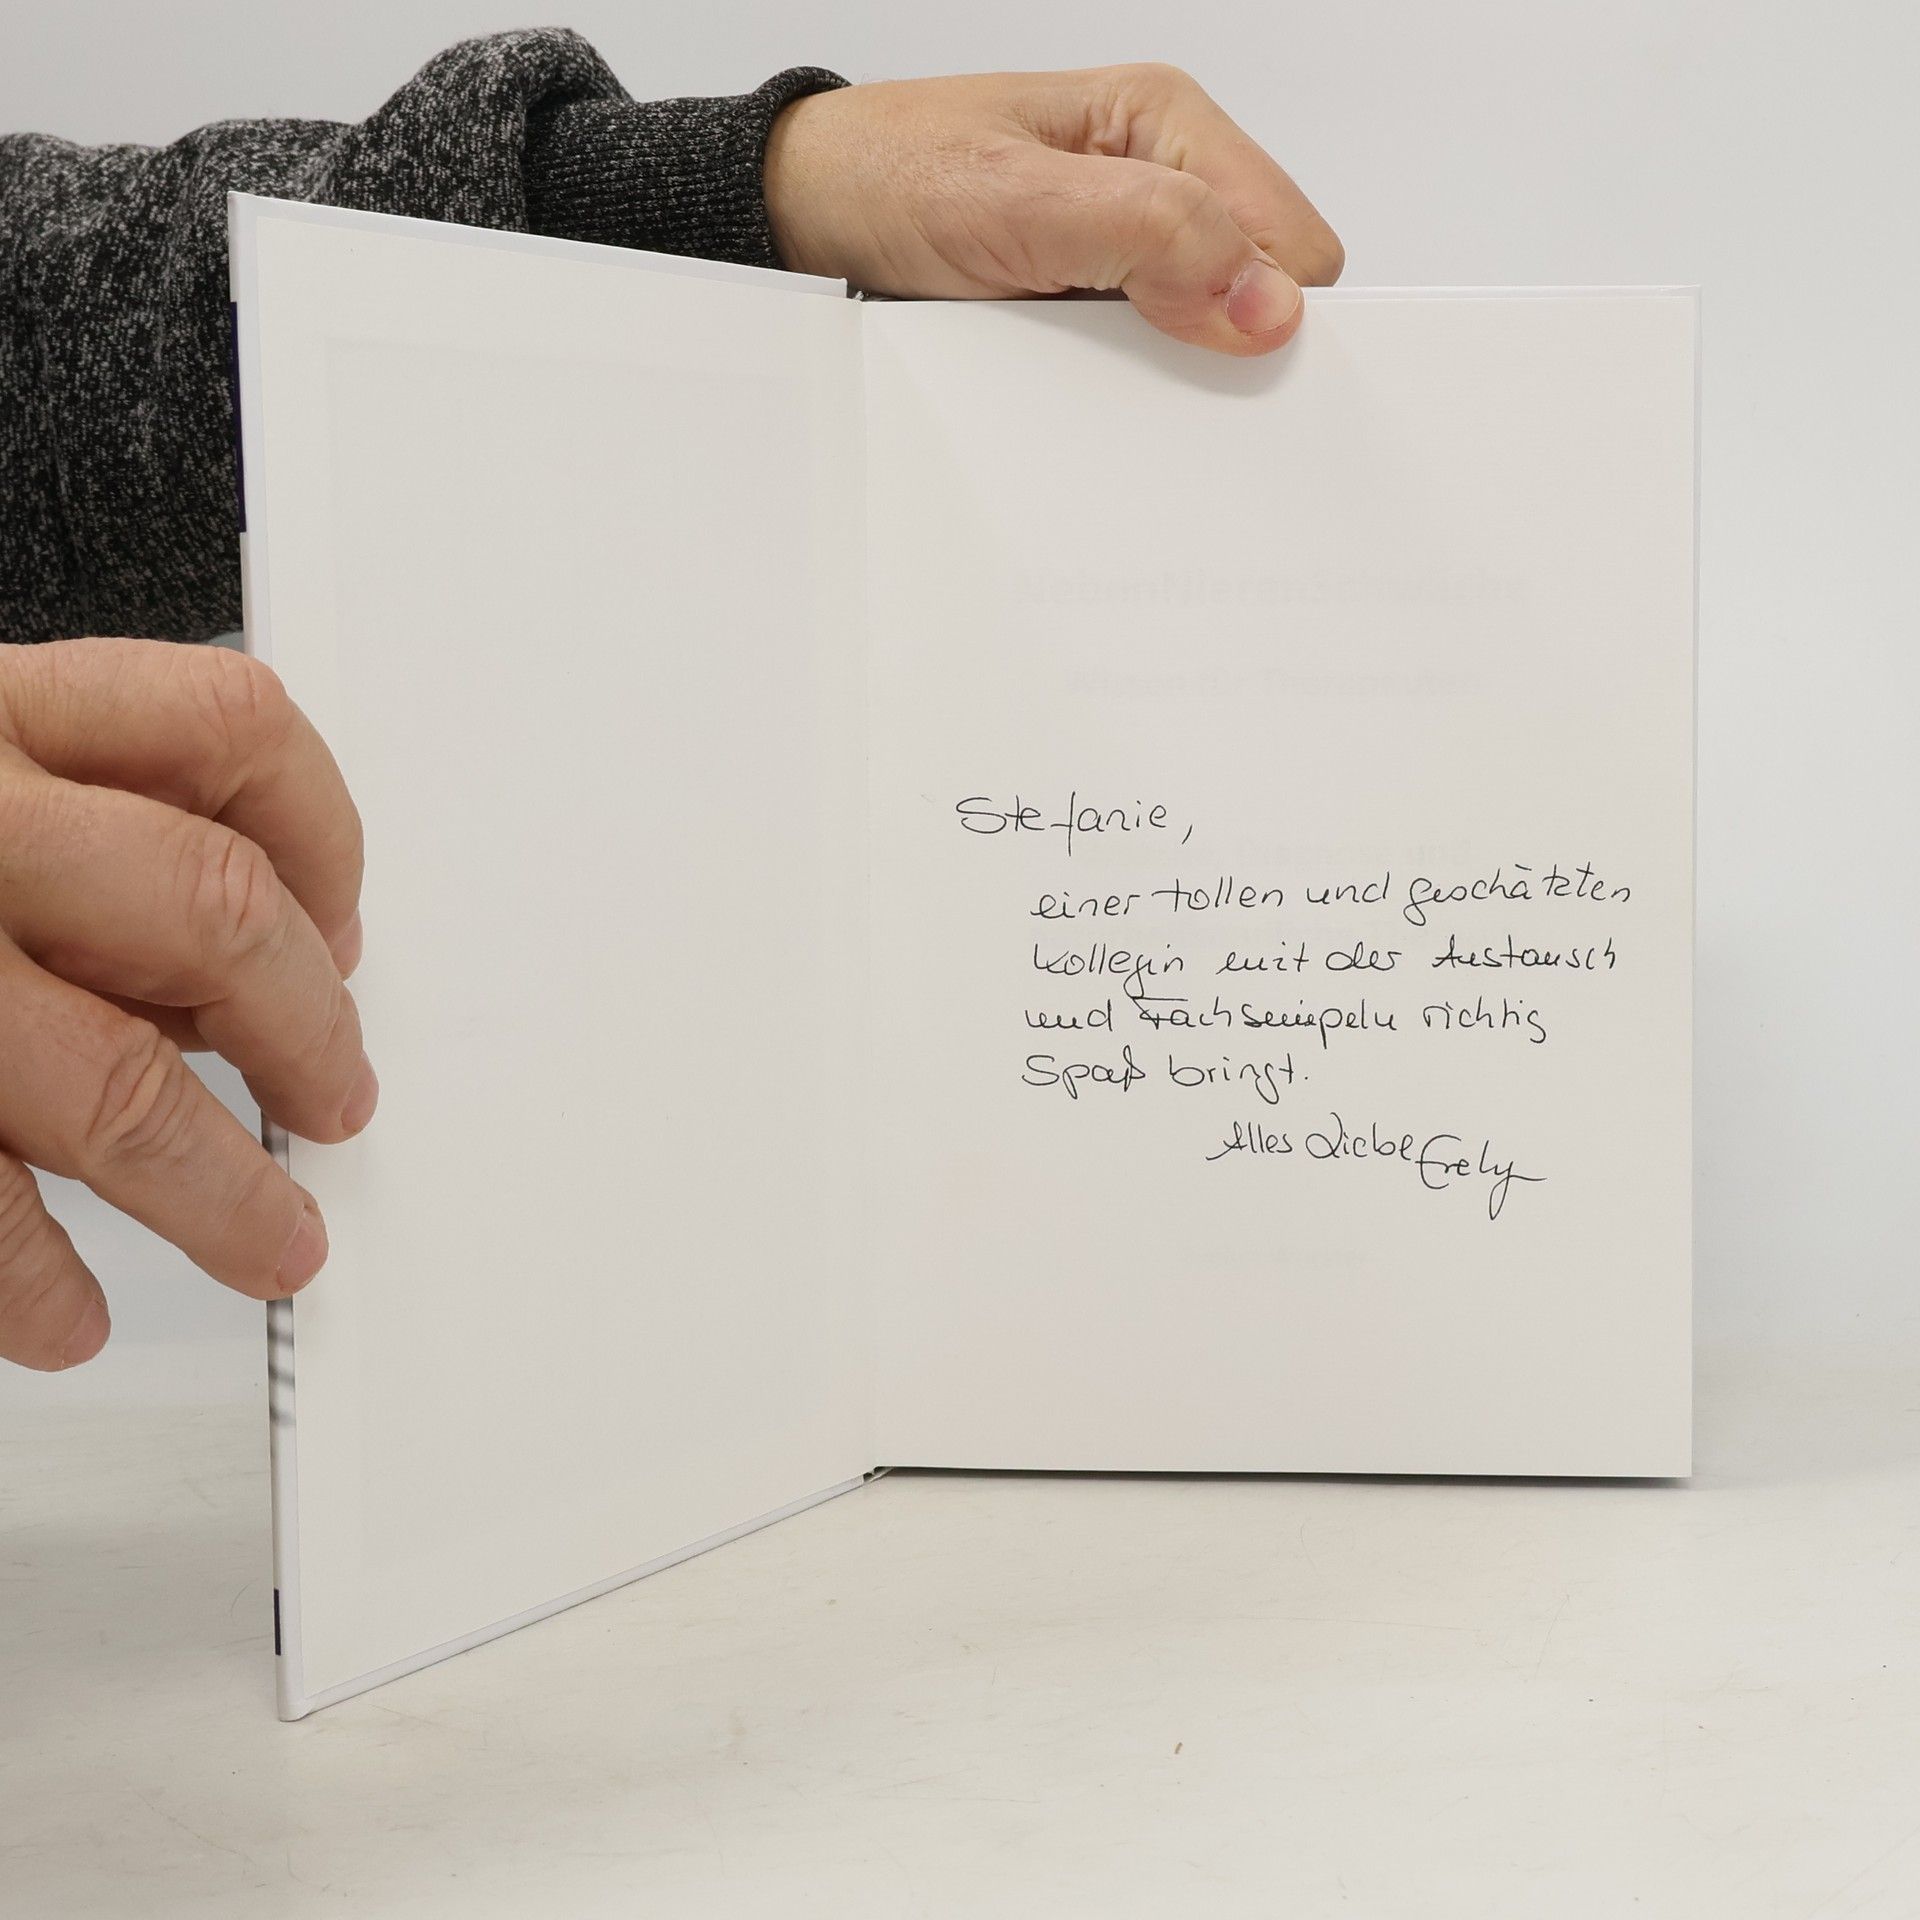 Stefanie,
einer tollen und geschätzten
Kollegin mit der Austausch
und Fachsimpeln richtig
Spaß bringt.
Alles Liebe